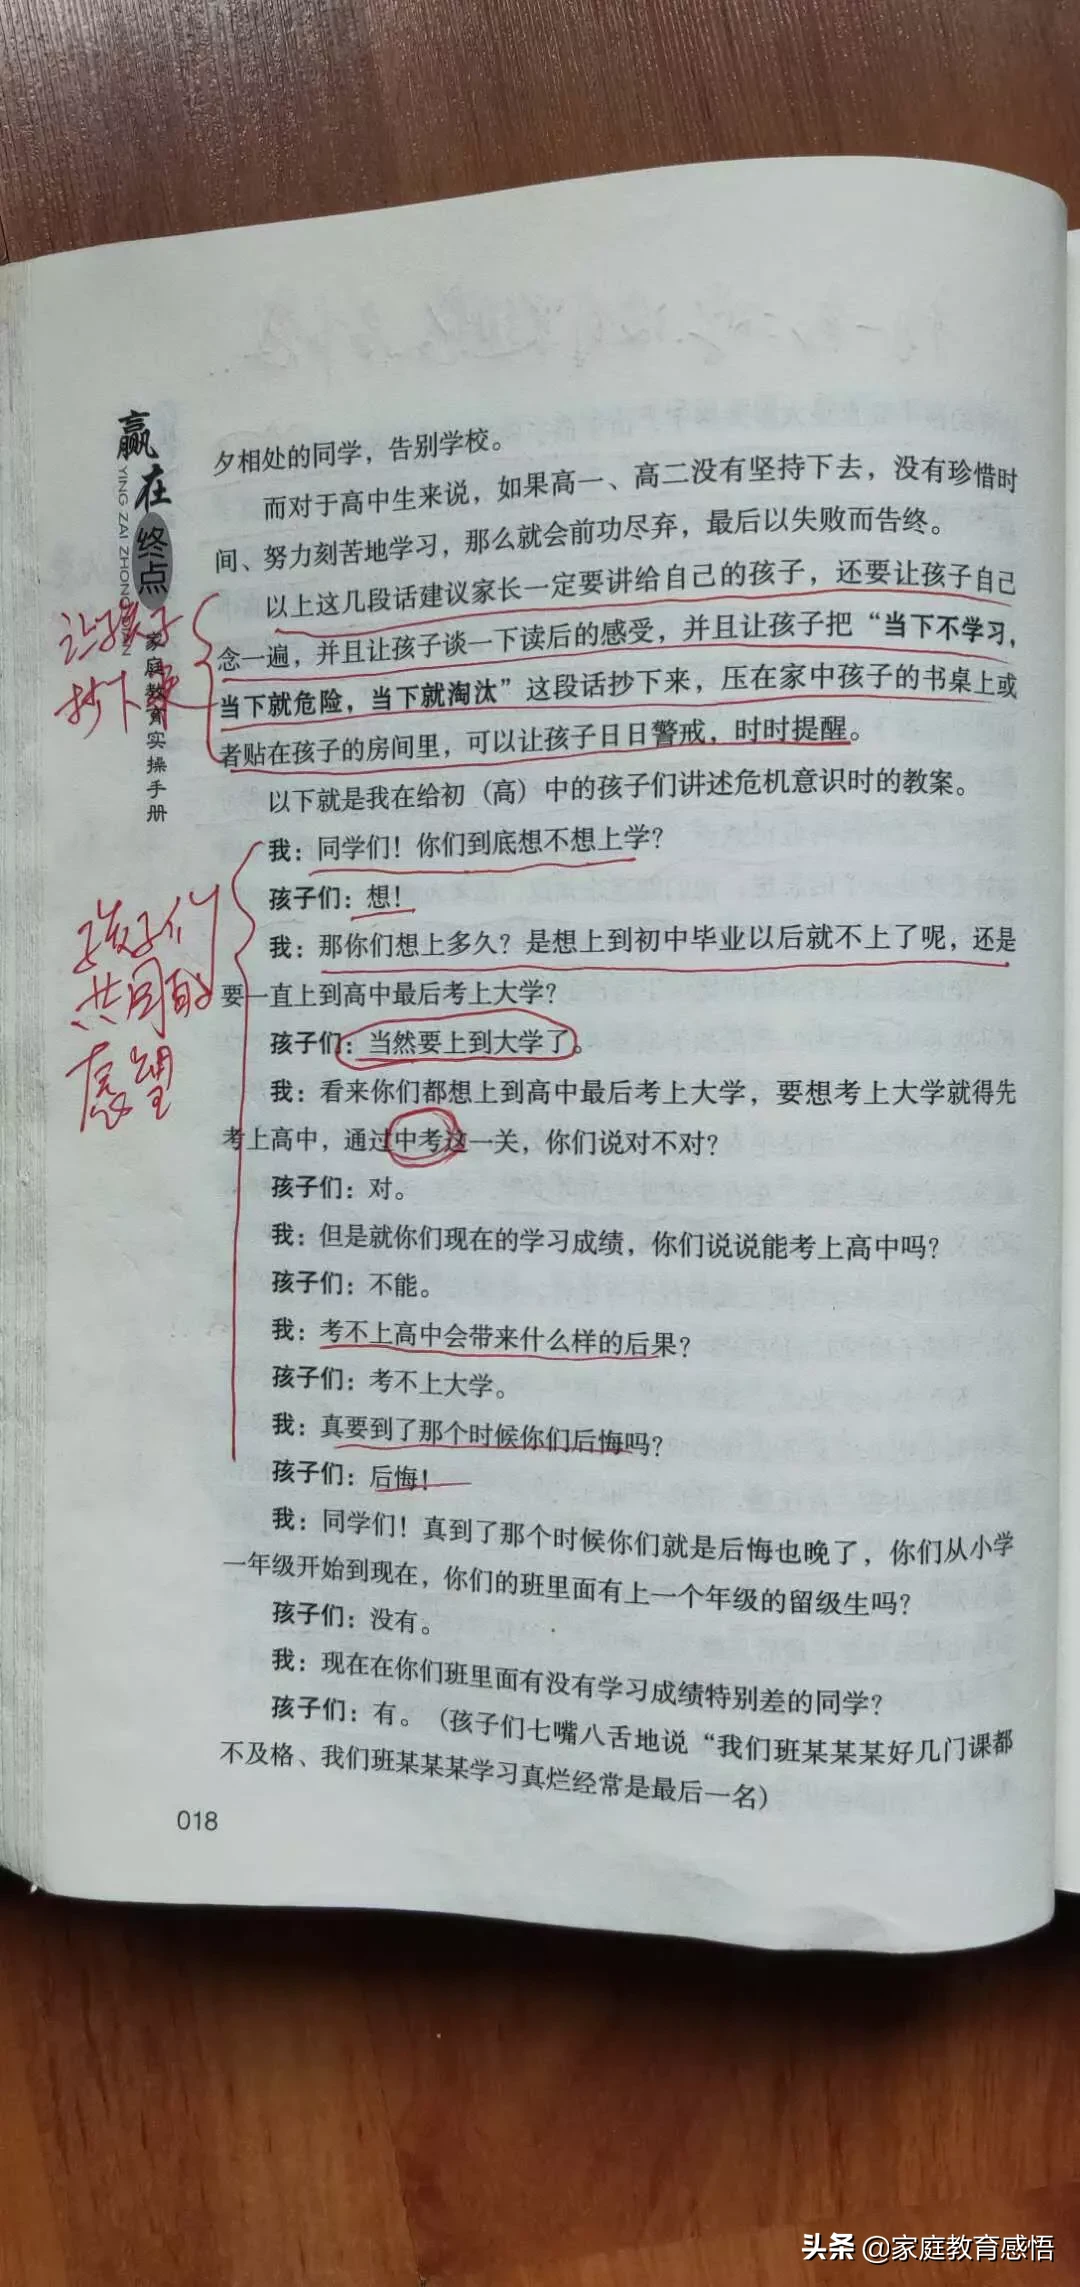 赢在终点
YING ZAI ZHONG
家庭教育实操手册
夕相处的同学，告别学校。
而对于高中生来说，如果高一、高二没有坚持下去，没有珍惜时
间、努力刻苦地学习，那么就会前功尽弃，最后以失败而告终。
以上这几段话建议家长一定要讲给自己的孩子，还要让孩子自己
念一遍，并且让孩子谈一下读后的感受，并且让孩子把“当下不学习，
当下就危险，当下就淘汰”这段话抄下来，压在家中孩子的书桌上或
者贴在孩子的房间里，可以让孩子日日警戒，时时提醒。
让孩子
抄下来
以下就是我在给初（高）中的孩子们讲述危机意识时的教案。
我：同学们！你们到底想不想上学？
孩子们：想！
我：那你们想上多久？是想上到初中毕业以后就不上了呢，还是
要一直上到高中最后考上大学？
孩子们：当然要上到大学了。
我：看来你们都想上到高中最后考上大学，要想考上大学就得先
考上高中，通过中考这一关，你们说对不对？
孩子们：对。
我：但是就你们现在的学习成绩，你们说说能考上高中吗？
孩子们：不能。
我：考不上高中会带来什么样的后果？
孩子们：考不上大学。
我：真要到了那个时候你们后悔吗？
孩子们：后悔！
孩子们
共同的
愿望
我：同学们！真到了那个时候你们就是后悔也晚了，你们从小学
一年级开始到现在，你们的班里面有上一个年级的留级生吗？
孩子们：没有。
我：现在在你们班里面有没有学习成绩特别差的同学？
孩子们：有。（孩子们七嘴八舌地说“我们班某某某好几门课都
不及格、我们班某某某学习真烂经常是最后一名）
018
头条 @家庭教育感悟